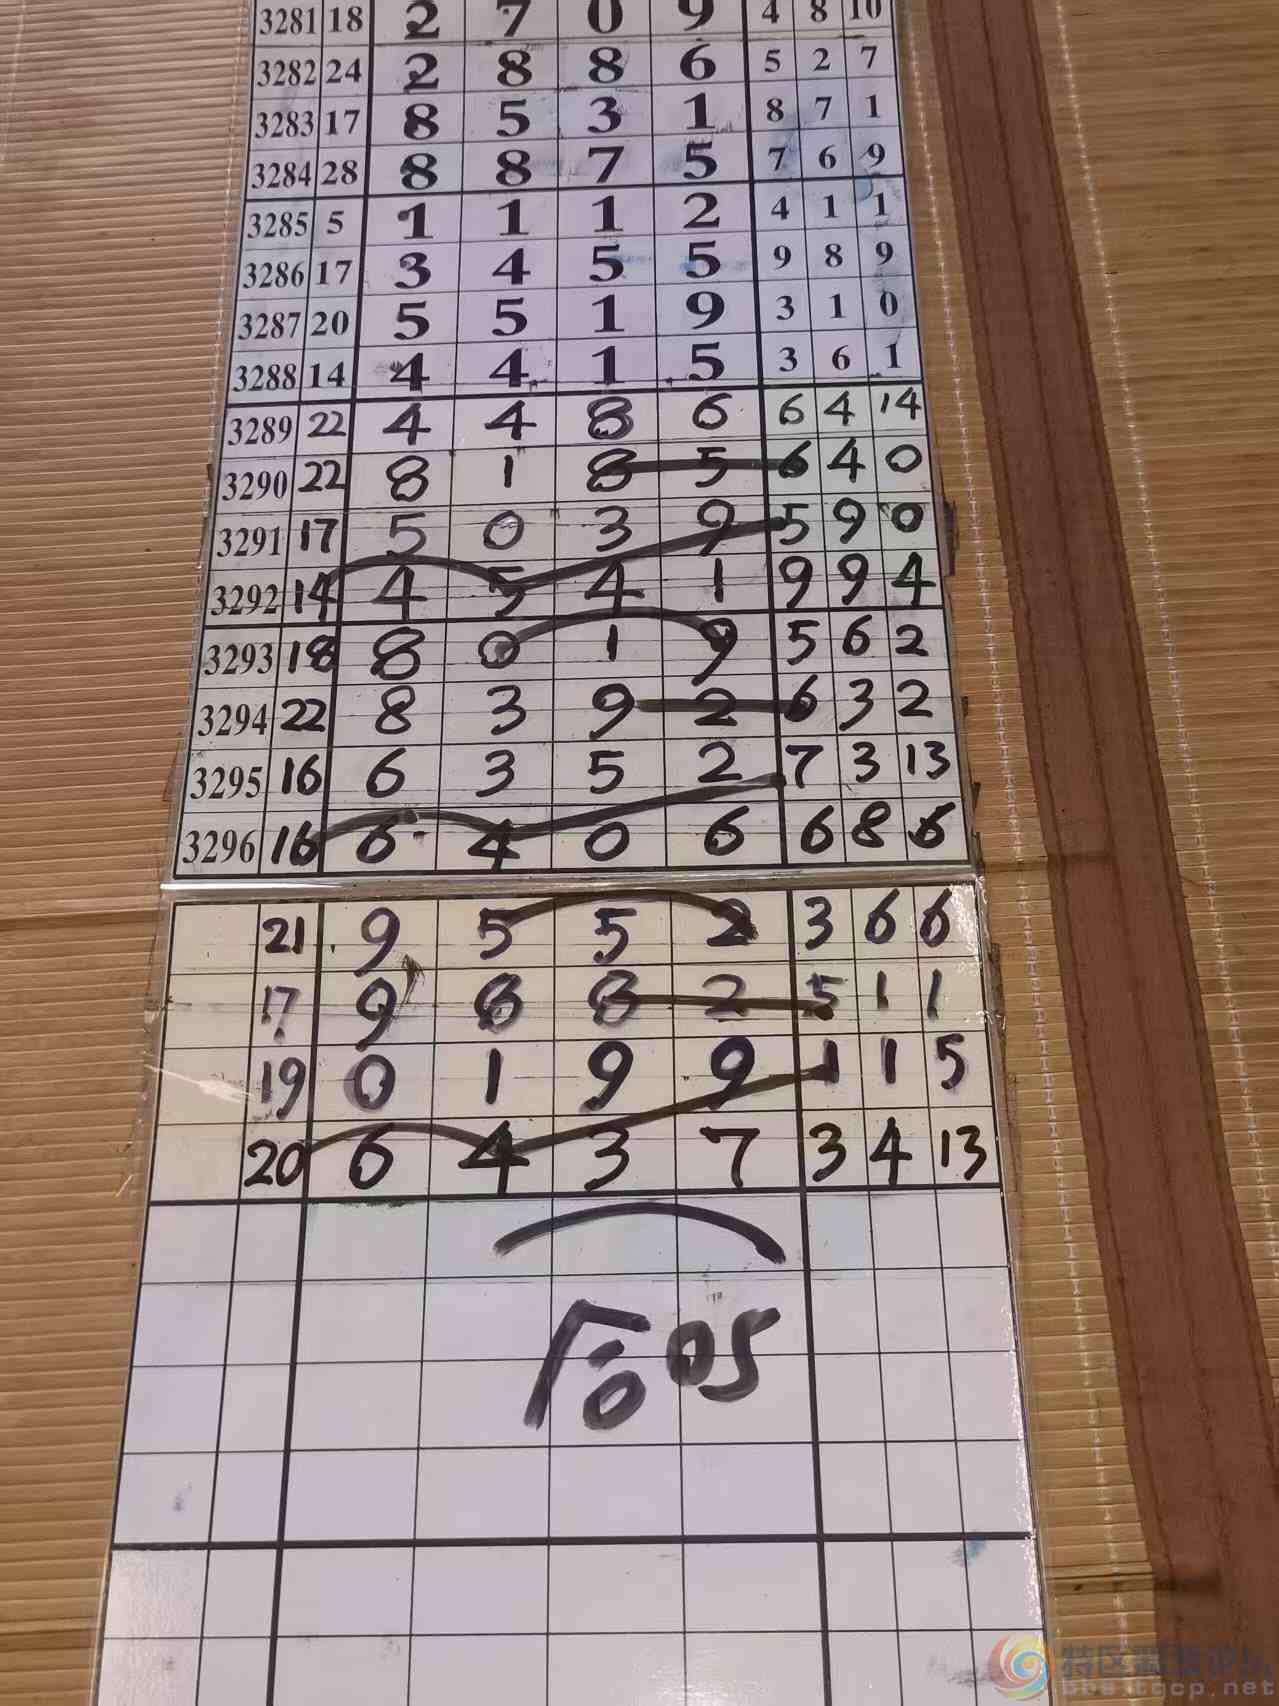 3281 18 2 7 0 9 4 8 10
3282 24 2 8 8 6 5 2 7
3283 17 8 5 3 1 8 7 1
3284 28 8 8 7 5 7 6 9
3285 5 1 1 1 2 4 1 1
3286 17 3 4 5 5 9 8 9
3287 20 5 5 1 9 3 1 0
3288 14 4 4 1 5 3 6 1
3289 22 4 4 8 6 6 4 14
3290 22 8 1 8 5 6 4 0
3291 17 5 0 3 9 5 9 0
3292 14 4 5 4 1 9 9 4
3293 18 8 0 1 9 5 6 2
3294 22 8 3 9 2 6 3 2
3295 16 6 3 5 2 7 3 13
3296 16 6 4 0 6 6 8 6
21 9 5 5 2 3 6 6
17 9 2 5 1 1
19 0 1 9 9 1 1 5
20 6 4 3 7 3 4 13
后 05
bbs.tgcp.net